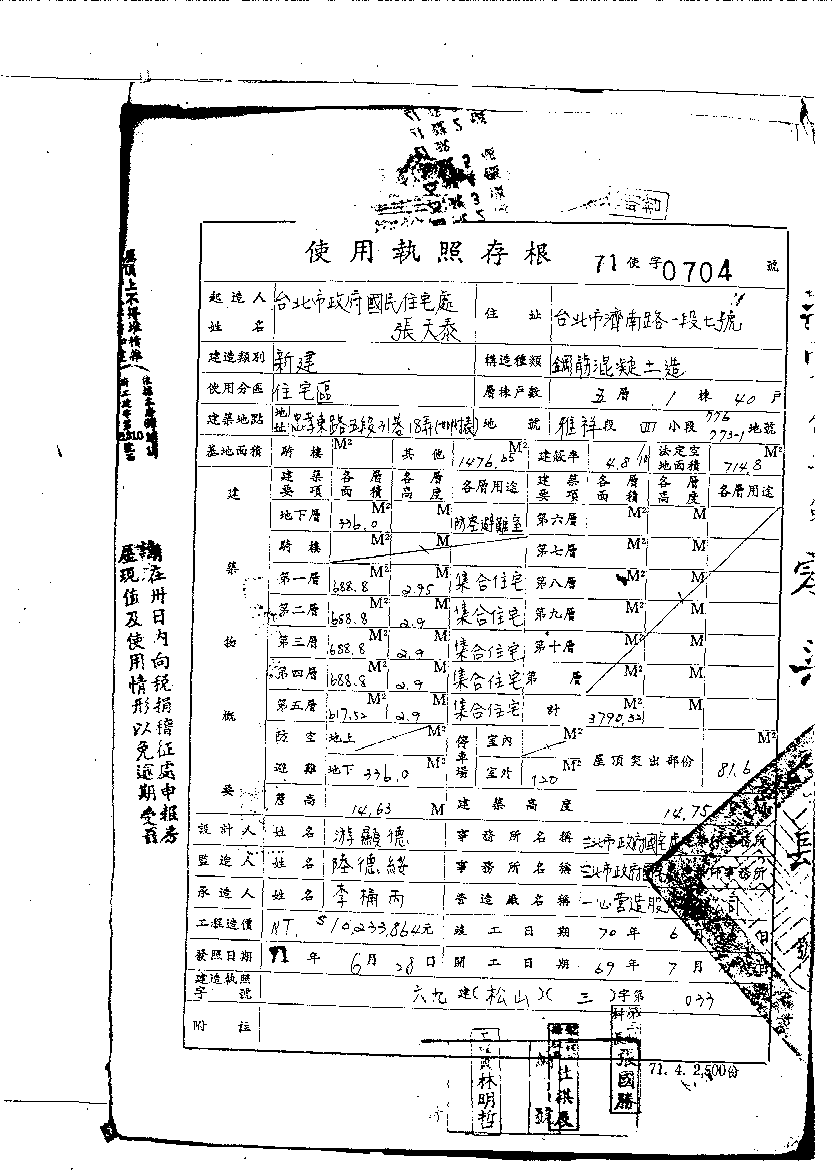 使用執照存根 71使字0704號
起造人姓名 台北市政府國民住宅處 張天泰 住址 台北市濟南路一段七號
建造類別 新建 構造種類 鋼筋混凝土造
使用分區 住宅區 層棟戶數 五層 1棟 40戶
建築地點 地址 忠孝東路五段31巷18弄 地號 雅祥段 四小段 776 773-1地號
基地面積 騎樓 M² 其他 1476.55 M² 建蔽率 4.8/10 法定空地面積 714.8 M²
建築物概要
建築要項 各層面積 各層高度 各層用途 建築要項 各層面積 各層高度 各層用途
地下層 336.0 M² M 防空避難室 第六層 M² M
騎樓 M² M 第七層 M² M
第一層 688.8 M² 2.95 M 集合住宅 第八層 M² M
第二層 688.8 M² 2.9 M 集合住宅 第九層 M² M
第三層 688.8 M² 2.9 M 集合住宅 第十層 M² M
第四層 688.8 M² 2.9 M 集合住宅 第 層 M² M
第五層 617.52 M² 2.9 M 集合住宅 計 3790.32 M² M
防空避難 地上 M² 停車場 室內 M² 屋頂突出部份 81.6 M²
地下 336.0 M² 室外 120 M²
簷高 14.63 M 建築高度 14.75 M
設計人 姓名 游顯德 事務所名稱 北市政府國宅處
監造人 姓名 陸德綏 事務所名稱 北市政府國宅 師事務所
承造人 姓名 李 丙 營造廠名稱 一心營造股 公司
工程造價 NT. $10,233,864元 竣工日期 70年 6月 日
發照日期 71年 6月 28日 開工日期 69年 7月
建造執照字號 六九建(松山)(三)字第 033
附註
71. 4. 2,500份
張國勝
林明哲
屋頂上不得堆積雜
請在卅日內向稅捐稽征處申報房
屋現值及使用情形以免逾期受罰